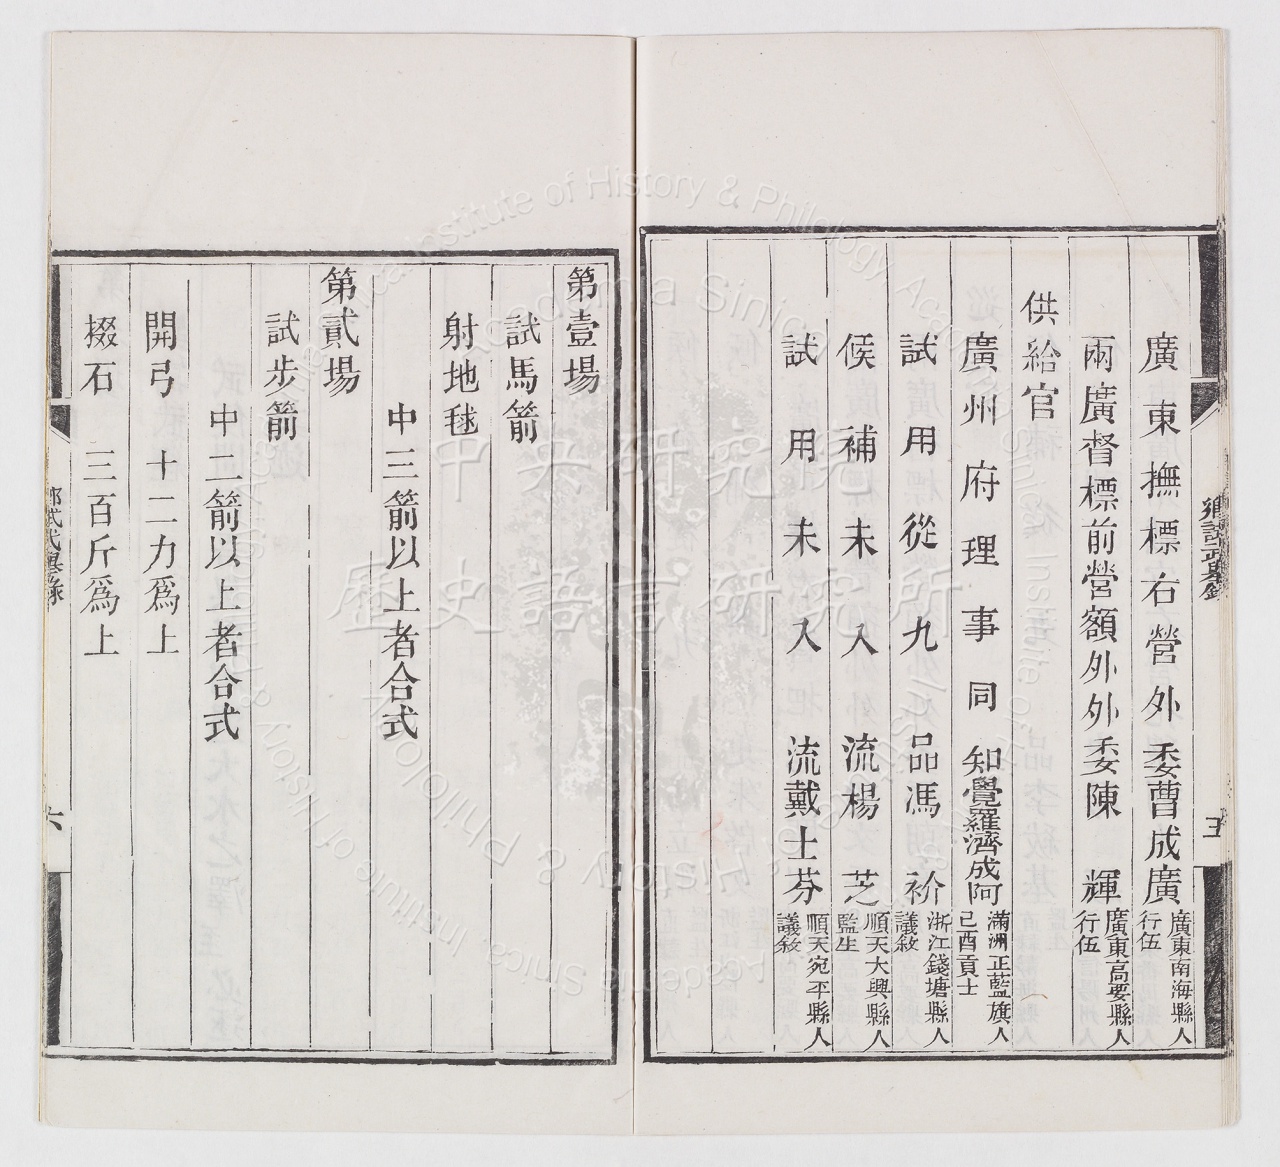 廣東撫標右營外委曹成廣 廣東南海縣人 行伍
兩廣督標前營額外外委陳輝 廣東高要縣人 行伍
供給官
廣州府理事同知覺羅濟成阿 滿洲正藍旗人 己酉貢士
試用從九品馮衸 浙江錢塘縣人 議敘
候補未入流楊芝 順天大興縣人 監生
試用未入流戴士芬 順天宛平縣人 議敘
第壹場
試馬箭
射地毬
中三箭以上者合式
第貳場
試步箭
中二箭以上者合式
開弓 十二力爲上
掇石 三百斤爲上
六
中央研究院
歷史語言研究所
Institute of History & Philology, Academia Sinica